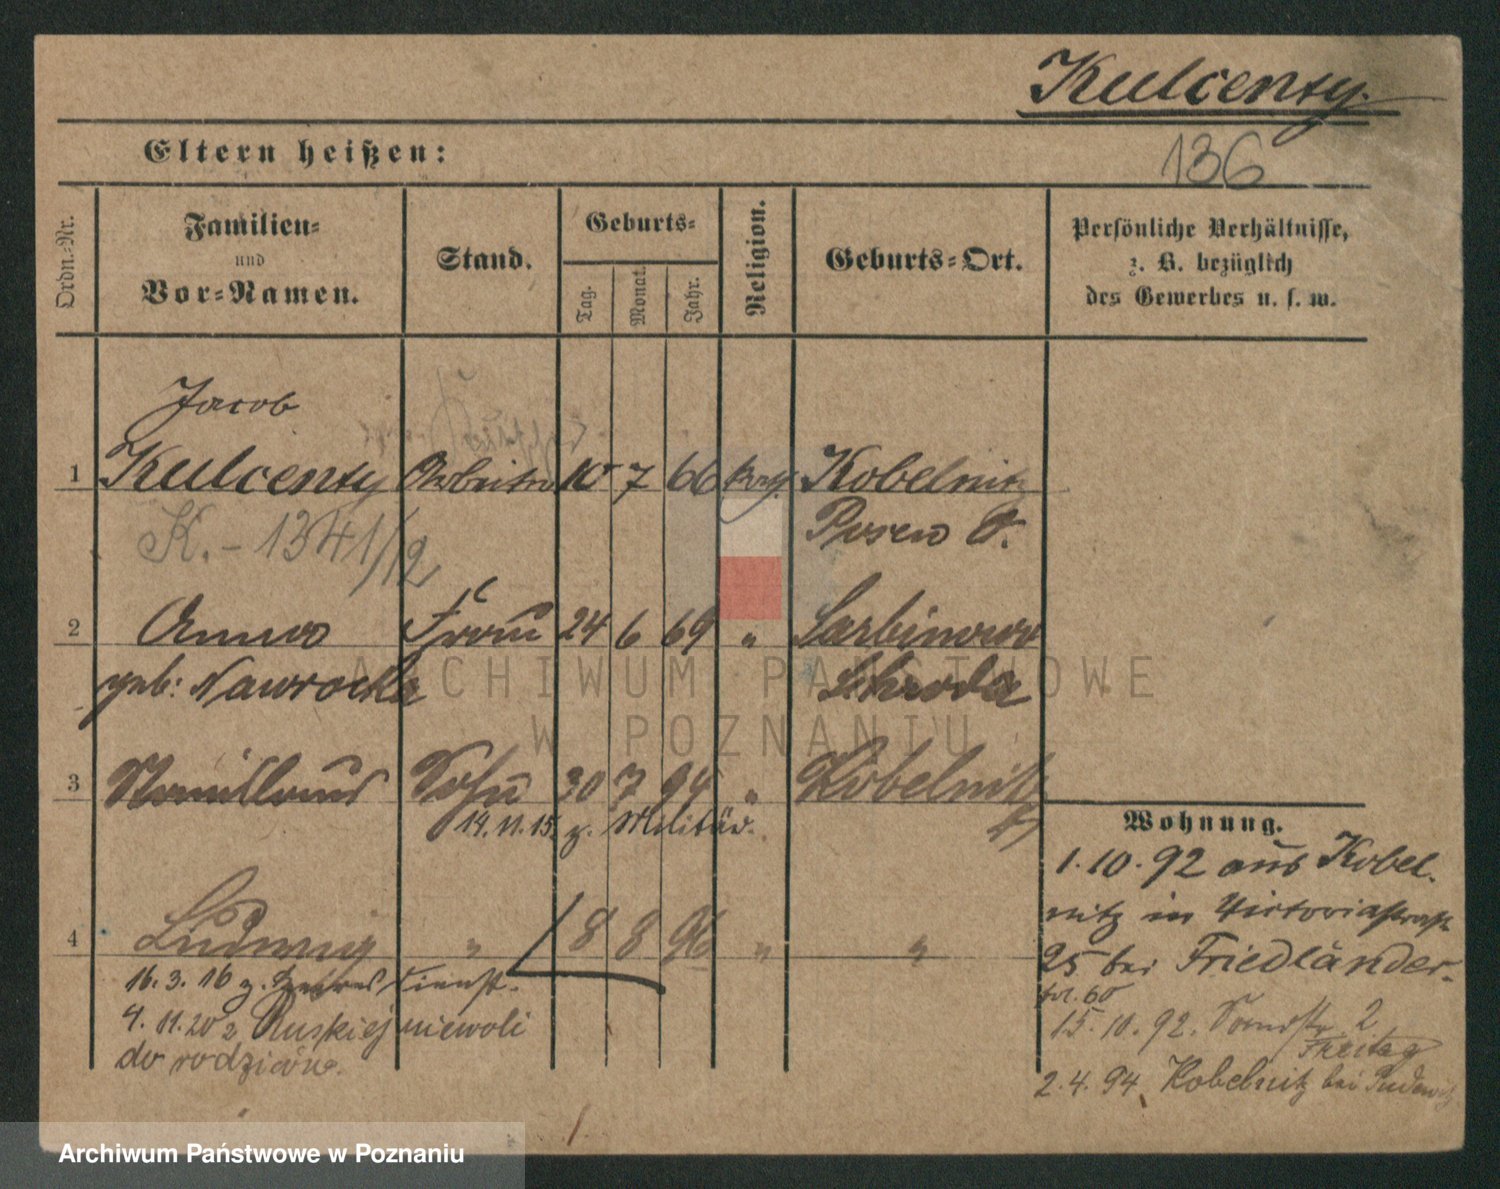 Kulcenty.
136
Eltern heißen:
Ordn.-Nr.
Familien-
und
Vor-Namen.
Stand.
Geburts-
Tag.
Monat.
Jahr.
Religion.
Geburts-Ort.
Persönliche Verhältnisse,
z. B. bezüglich
des Gewerbes u. s. w.
Jacob
1 Kulcenty Arbeiter 10 7 66 kath. Kobelnitz
K. - 1341/12 Posen O.
2 Anna Frau 24 6 69 " Sarbinowo
geb: Nawrocka Schroda
3 Stanislaus Sohn 30 7 94 " Kobelnitz
14.11.15. z. Militär.
4 Ludwig " 8 8 96 " "
16.3.16 z. Heeresdienst.
4.11.20 z Ruskiej niewoli
do rodziców.
Wohnung.
1.10.92 aus Kobel-
nitz in Victoriastraße
25 bei Friedländer.
fol. 60
15.10.92. 2
Freitag
2.4.94 Kobelnitz bei Pudewitz
ARCHIWUM PAŃSTWOWE
W POZNANIU
Archiwum Państwowe w Poznaniu